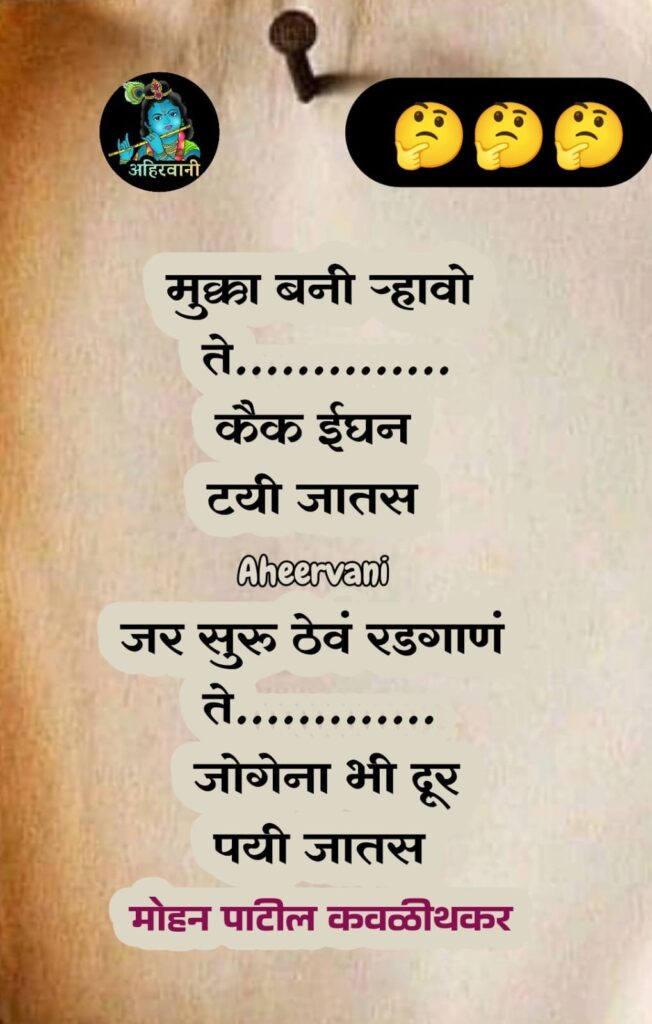 अहिरवानी
🤔🤔🤔
मुक्का बनी ऱ्हावो
ते..............
कैक ईघन
टयी जातस
Aheervani
जर सुरु ठेवं रडगाणं
ते.............
जोगेना भी दूर
पयी जातस
मोहन पाटील कवळीथकर